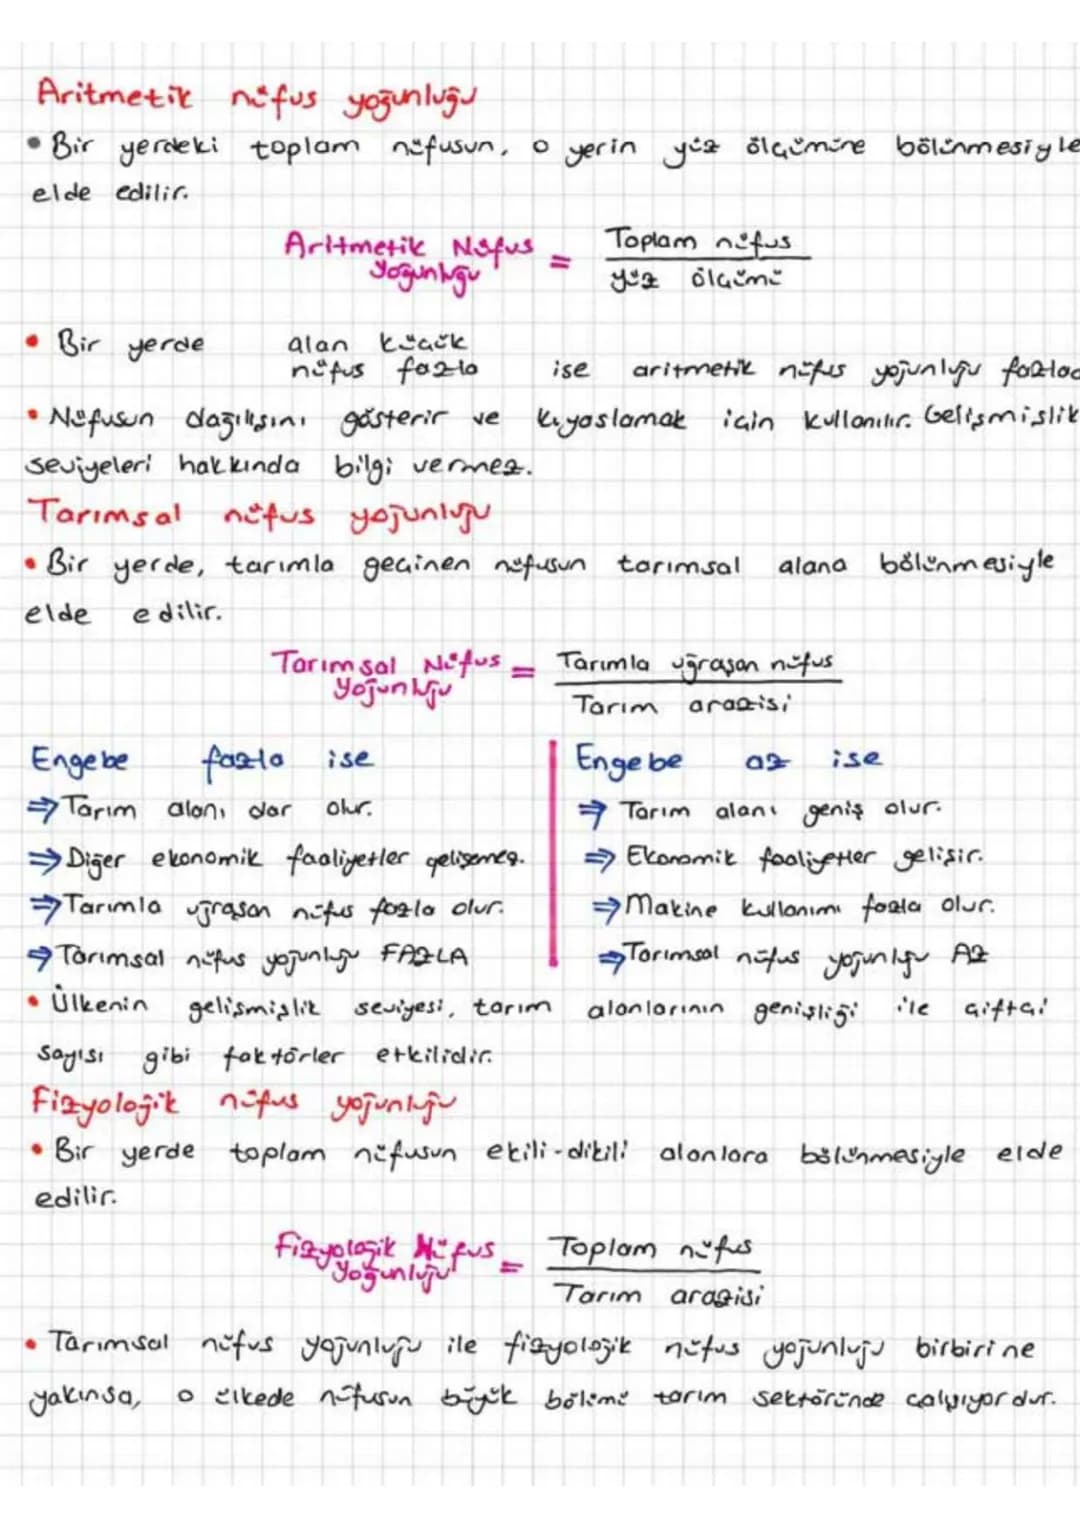 Aritmetik nüfus yoğunluğu
• Bir yerdeki toplam nüfusun, o yerin yüz ölçümüne bölünmesiyle
elde edilir.
Aritmetik Nüfus Yoğunluğu = Toplam nüfus
yüz ölçümü
• Bir yerde alan küçük
nüfus fazla ise aritmetik nüfus yoğunluğu fazla
• Nüfusun dağılışını gösterir ve kıyaslamak için kullanılır. Gelişmişlik
seviyeleri hakkında bilgi vermez.
Tarımsal nüfus yoğunluğu
• Bir yerde, tarımla geçinen nüfusun tarımsal alana bölünmesiyle
elde edilir.
Tarımsal Nüfus Yoğunluğu = Tarımla uğraşan nüfus
Tarım arazisi
Engebe fazla ise
⇒ Tarım alanı dar olur.
⇒ Diğer ekonomik faaliyetler gelişemez.
⇒ Tarımla uğraşan nüfus fazla olur.
⇒ Tarımsal nüfus yoğunluğu FAZLA
Engebe az ise
⇒ Tarım alanı geniş olur.
⇒ Ekonomik faaliyetler gelişir.
⇒ Makine kullanımı fazla olur.
⇒ Tarımsal nüfus yoğunluğu AZ
• Ülkenin gelişmişlik seviyesi, tarım alanlarının genişliği ile çiftçi
sayısı gibi faktörler etkilidir.
Fizyolojik nüfus yoğunluğu
• Bir yerde toplam nüfusun ekili-dikili alanlara bölünmesiyle elde
edilir.
Fizyolojik Nüfus Yoğunluğu = Toplam nüfus
Tarım arazisi
• Tarımsal nüfus yoğunluğu ile fizyolojik nüfus yoğunluğu birbirine
yakınsa, o ülkede nüfusun büyük bölümü tarım sektöründe çalışıyordur.